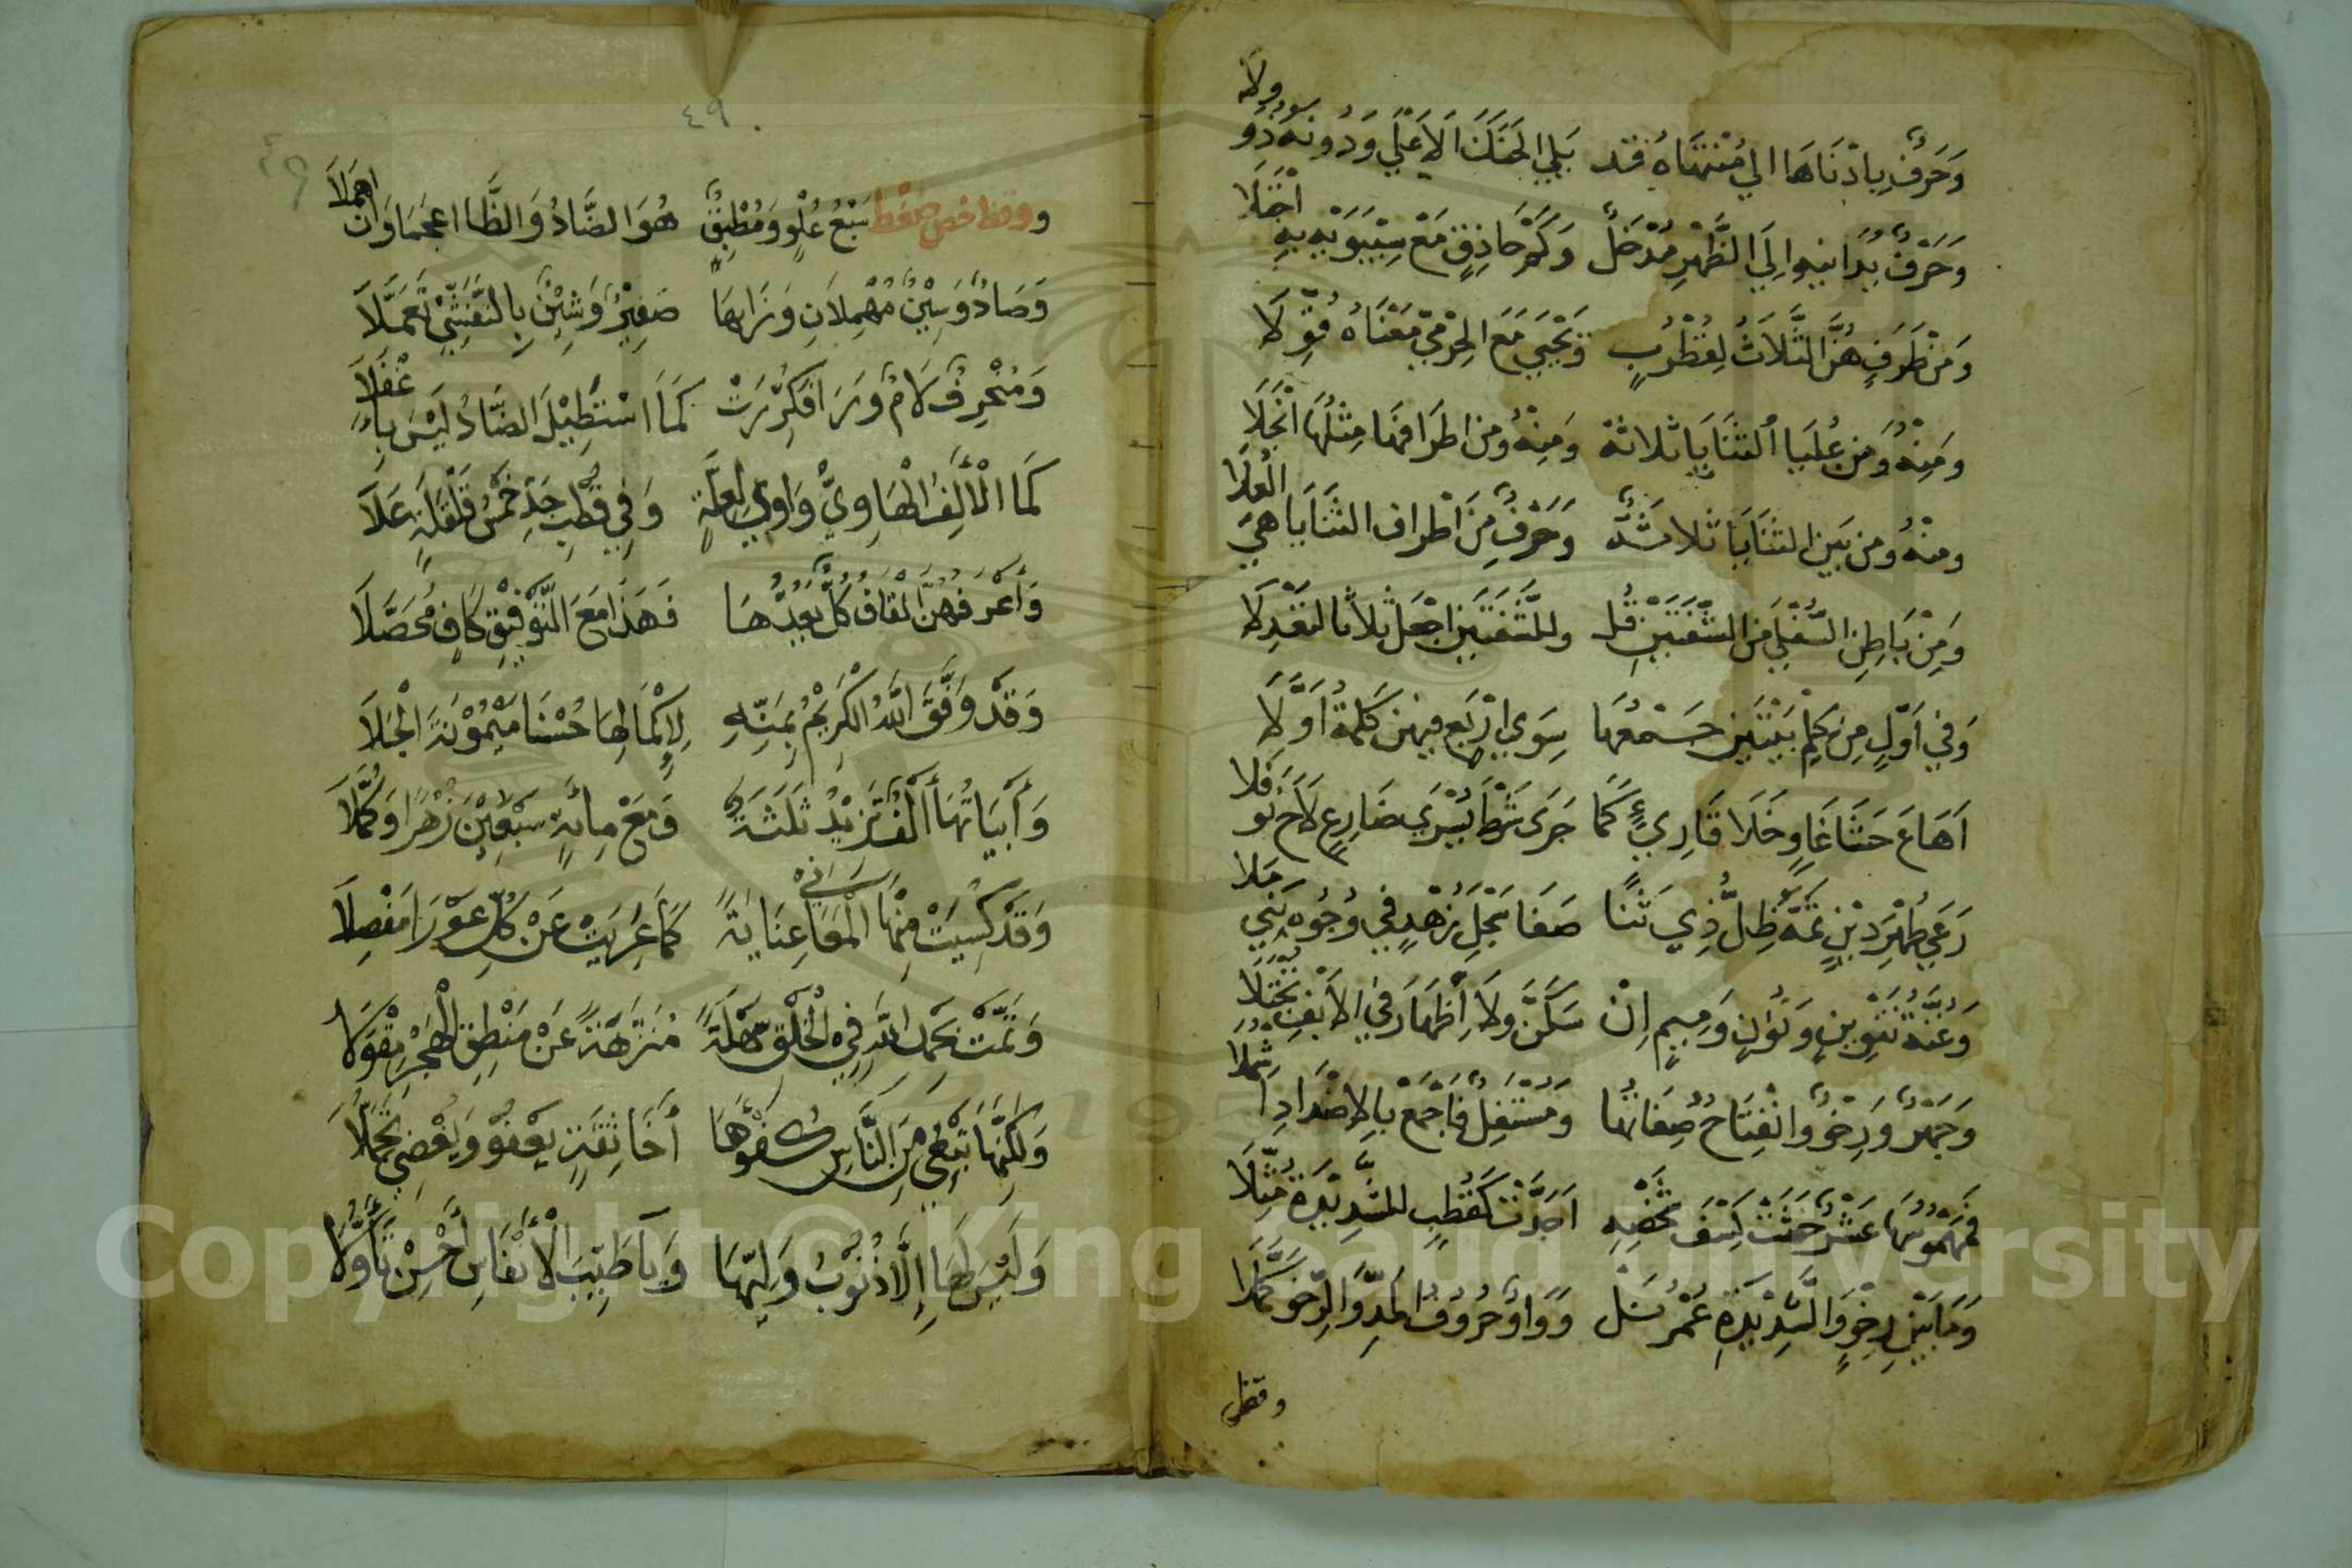 وَحَرْفٌ بِادْنَاهَا الي مُنْتَهَاهُ قَد يَلِي الحَنَكَ الاَعْلَي وَدُونَهُ ذُو وِلَا
وَحَرْفٌ يُدَانيه الَي الظَّهْرِ مُدْخَلٌ وَكَمْ حَاذِقٍ مَعْ سِيْبَوَيْهِ بِهِ اجْتَلَا
وَمِنْ طَرَفٍ هُنَّ الثَّلَاثُ لِقُطْرُبٍ وَيَحْيَي مَعَ الجَرْمِيّ مَعْنَاهُ قُوِّلَا
وَمِنْهُ وَمِن عُلْيَا الثَنَايَا ثلاثة وَمِنْهُ ومن اطْرَافهَا مِثْلُهَا انْجَلَا
ومنْهُ ومن بَين الثنَايَا ثلاثَةٌ وَحَرْفٌ مِنَ اَطْراف الثَنَايَا هِيَ الْعُلَا
وَمِنْ بَاطِنِ السُّفْلَي مَن الشَّفَتَيْنِ قُل وللشَّفَتَيْنِ اجْعَل ثلاثا لتَعْدِلَا
وَفِي اَوَّلٍ مِن كِلْمِ بَيْتَيْنِ جَمْعُهَا سِوَي ارْبَع فيهن كَلْمَةٌ اَوَّلَا
اَهَاعَ حَشَا غَاوٍ خَلَا قَارِيءٍ كَمَا جَرَى شَرْطُ يُسْرَي ضَارِعٍ لَاحَ نَوْفَلَا
رَعَي طُهْرَ دِيْنٍ تَمَّهُ ظِلُّ ذِي ثَنَا صَفَا سَجْلُ زُهْدٍ فِي وُجُوهِ بَنِي مَلَا
وَغُنَّة تَنْوِينٍ وَنُوْنٍ وَمِيمٍ اِنْ سَكَنَّ وَلَا اِظْهَارَ فِي الاَنْفِ تُجْتَلَا
وَجَهْرٌ وَرِخْوٌ وانْفِتَاحٌ صِفَاتُهَا وَمُسْتَفِلٌ فَاجْمَعْ بِالاِضْدَادِ اَشْمُلَا
فَمَهْمُوْسُهَا عَشْرٌ حَثَتْ كِسْفَ شَخْصِهِ اَجَدَّتْ كَقُطْبٍ للشَّدِيْدَةِ مُثِّلَا
وَمَا بَيْنَ رِخْوٍ وَالشَّدِيْدَةِ عُمْرُ نَل وَوَاوٌ حُرُوْفُ المَدِّ وَالرِّخْوَ كَمَّلَا
وقظ
٤٩
٤٩
و وقظ خص ضغط سَبْعُ عُلْوٍ وَمُطْبِقٌ هُوَ الضَّادُ وَالظَّا اعْجِمَا وَان اهْمِلَا
وَصَادٌ وَسِيْنٌ مُهْمِلَانِ وَزَايهَا صَفِيْرٌ وَشِيْنٌ بِالتَّفَشِّيْ تَعَمَّلَا
وَمُنْحَرِفٌ لَامٌ وَرَا وَكُرِّرَتْ كَمَا اسْتَطِيْلَ الضَّادُ لَيْسَ بِاَغْفَلَا
كَمَا الْأَلِفُ الْهَاوِيْ وَاوي لِعِلَّةٍ وَفِي قُطْبِ جَدٍّ خَمْسُ قَلْقَلَةٍ عَلَا
وَأَعْرَفُهُنَّ الْقَافُ كُلٌّ يَعُدُّهَا فَهَذَا مَعَ التَّوْفِيْقِ كَافٍ مُحَصَّلَا
وَقَدْ وَفَّقَ اللهُ الْكَرِيْمُ بِمَنِّهِ لِاِكْمَالِهَا حُسْنَا مَيْمُوْنَةَ الْجَلَا
وَأَبْيَاتُهَا أَلْفٌ تَزِيْدُ ثَلَثَةً وَمَعْ مِائَةٍ سَبْعِيْنَ زُهْرًا وَكُمَّلَا
وَقَدْ كُسِيَتْ مِنْهَا الْمَعَانِي عِنَايَةً كَمَا عَرِيَتْ عَنْ كُلِّ عَوْرَا مَفْصِلَا
وَتَمَّتْ بِحَمْدِ اللهِ فِي الْخَلْقِ سَهْلَةً مُنَزَّهَةً عَنْ مَنْطِقِ الْهَجْرِ مِقْوَلَا
وَلَكِنَّهَا تَبْغِي مِنَ النَّاسِ كُفْؤَهَا أَخَا ثِقَةٍ يَعْفُوْ وَيُغْضِي تَجَمُّلَا
وَلَيْسَ لَهَا اِلَّا ذُنُوْبُ وَلِيِّهَا وَيَا طَيِّبَ الْأَنْفَاسِ أَحْسِنْ تَأَوُّلَا
Copyright © King Saud University